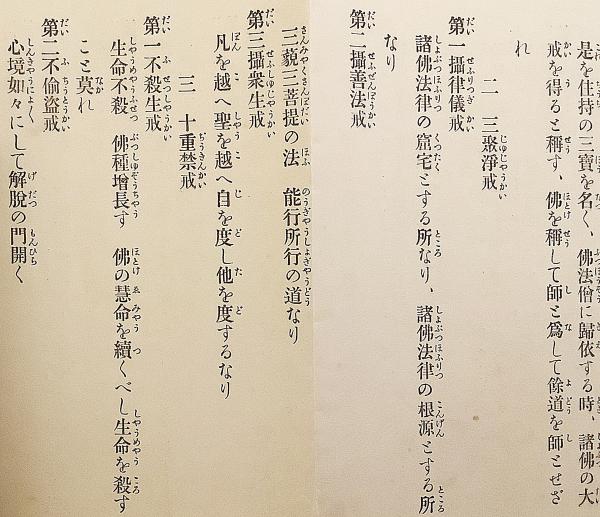 是を住持の三寳を名く、佛法僧に歸依する時、諸佛の大
戒を得ると稱す、佛を稱して師と爲して餘道を師とせざ
れ
二 三聚淨戒
第一攝律儀戒
諸佛法律の窟宅とする所なり、諸佛法律の根源とする所
なり
第二攝善法戒
三藐三菩提の法 能行所行の道なり
第三攝衆生戒
凡を越へ聖を越へ自を度し他を度するなり
三 十重禁戒
第一不殺生戒
生命不殺 佛種增長す 佛の慧命を續くべし生命を殺す
こと莫れ
第二不偷盜戒
心境如々にして解脫の門開く